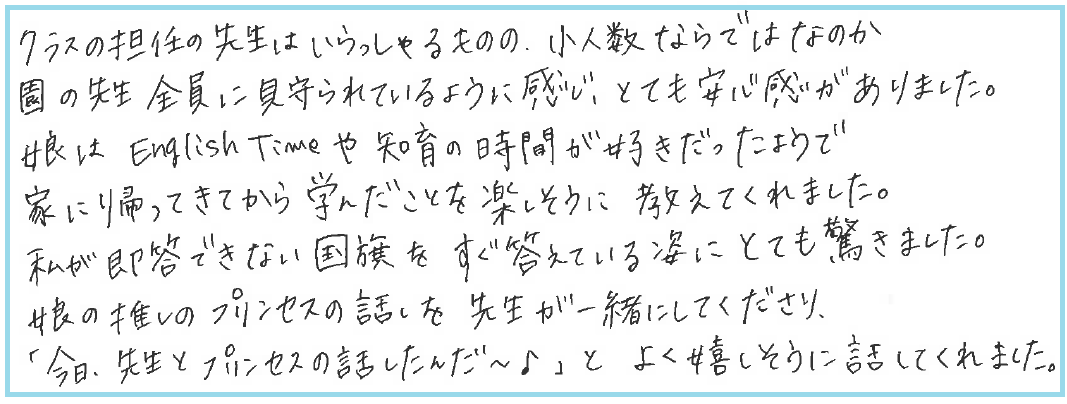 クラスの担任の先生はいらっしゃるものの、少人数ならではなのか
園の先生全員に見守られているように感じ、とても安心感がありました。
娘は English Timeや知育の時間が好きだったようで
家に帰ってきてから学んだことを楽しそうに教えてくれました。
私が即答できない国旗をすぐ答えている姿にとても驚きました。
娘の推しのプリンセスの話しを先生が一緒にしてくださり、
「今日、先生とプリンセスの話したんだ～♪」とよく嬉しそうに話してくれました。